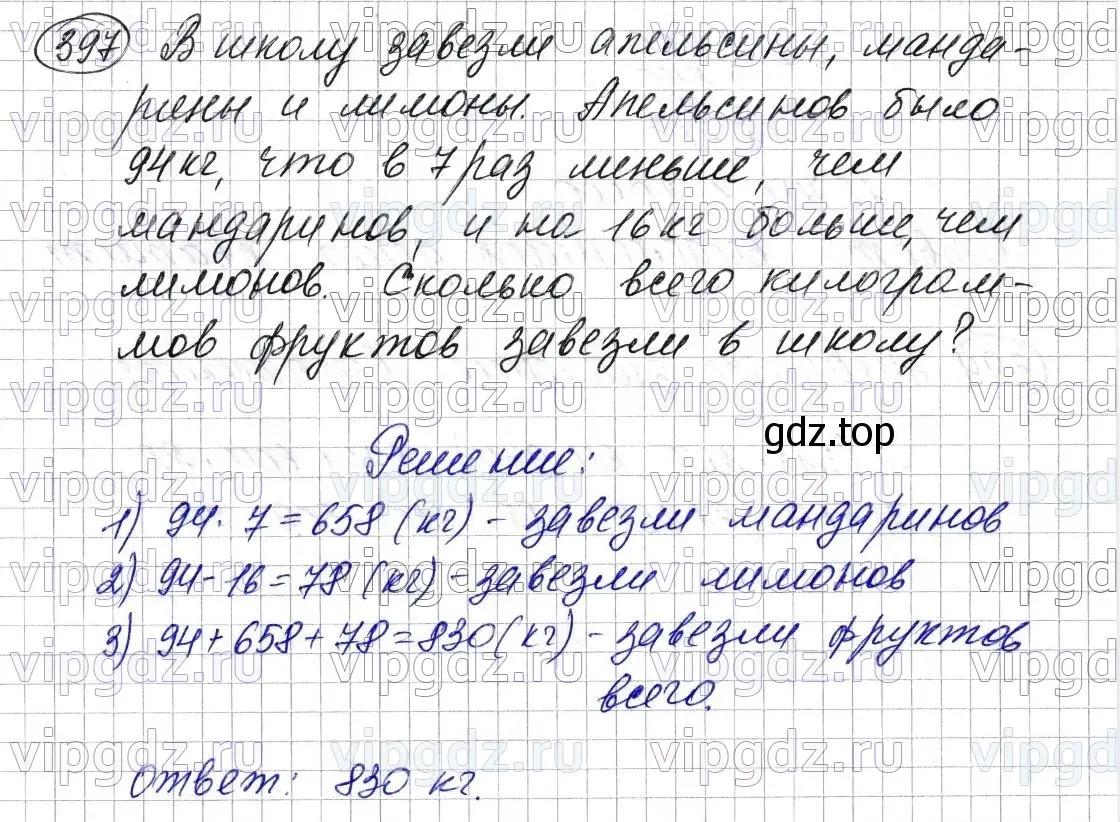 397 В школу завезли апельсины, манда-
рины и лимоны. Апельсинов было
94 кг, что в 7 раз меньше, чем
мандаринов, и на 16 кг больше, чем
лимонов. Сколько всего килограм-
мов фруктов завезли в школу?
gdz.top
Решение:
1) 94 · 7 = 658 (кг) - завезли мандаринов
2) 94 - 16 = 78 (кг) - завезли лимонов
3) 94 + 658 + 78 = 830 (кг) - завезли фруктов
всего.
Ответ: 830 кг.
vipgdz.ru